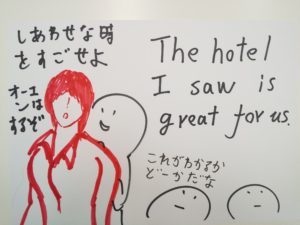 しあわせな時
をすごせよ
オーエ
ンは
するぞ
The hotel
I saw is
great for us.
これがわかるか
どーかだな